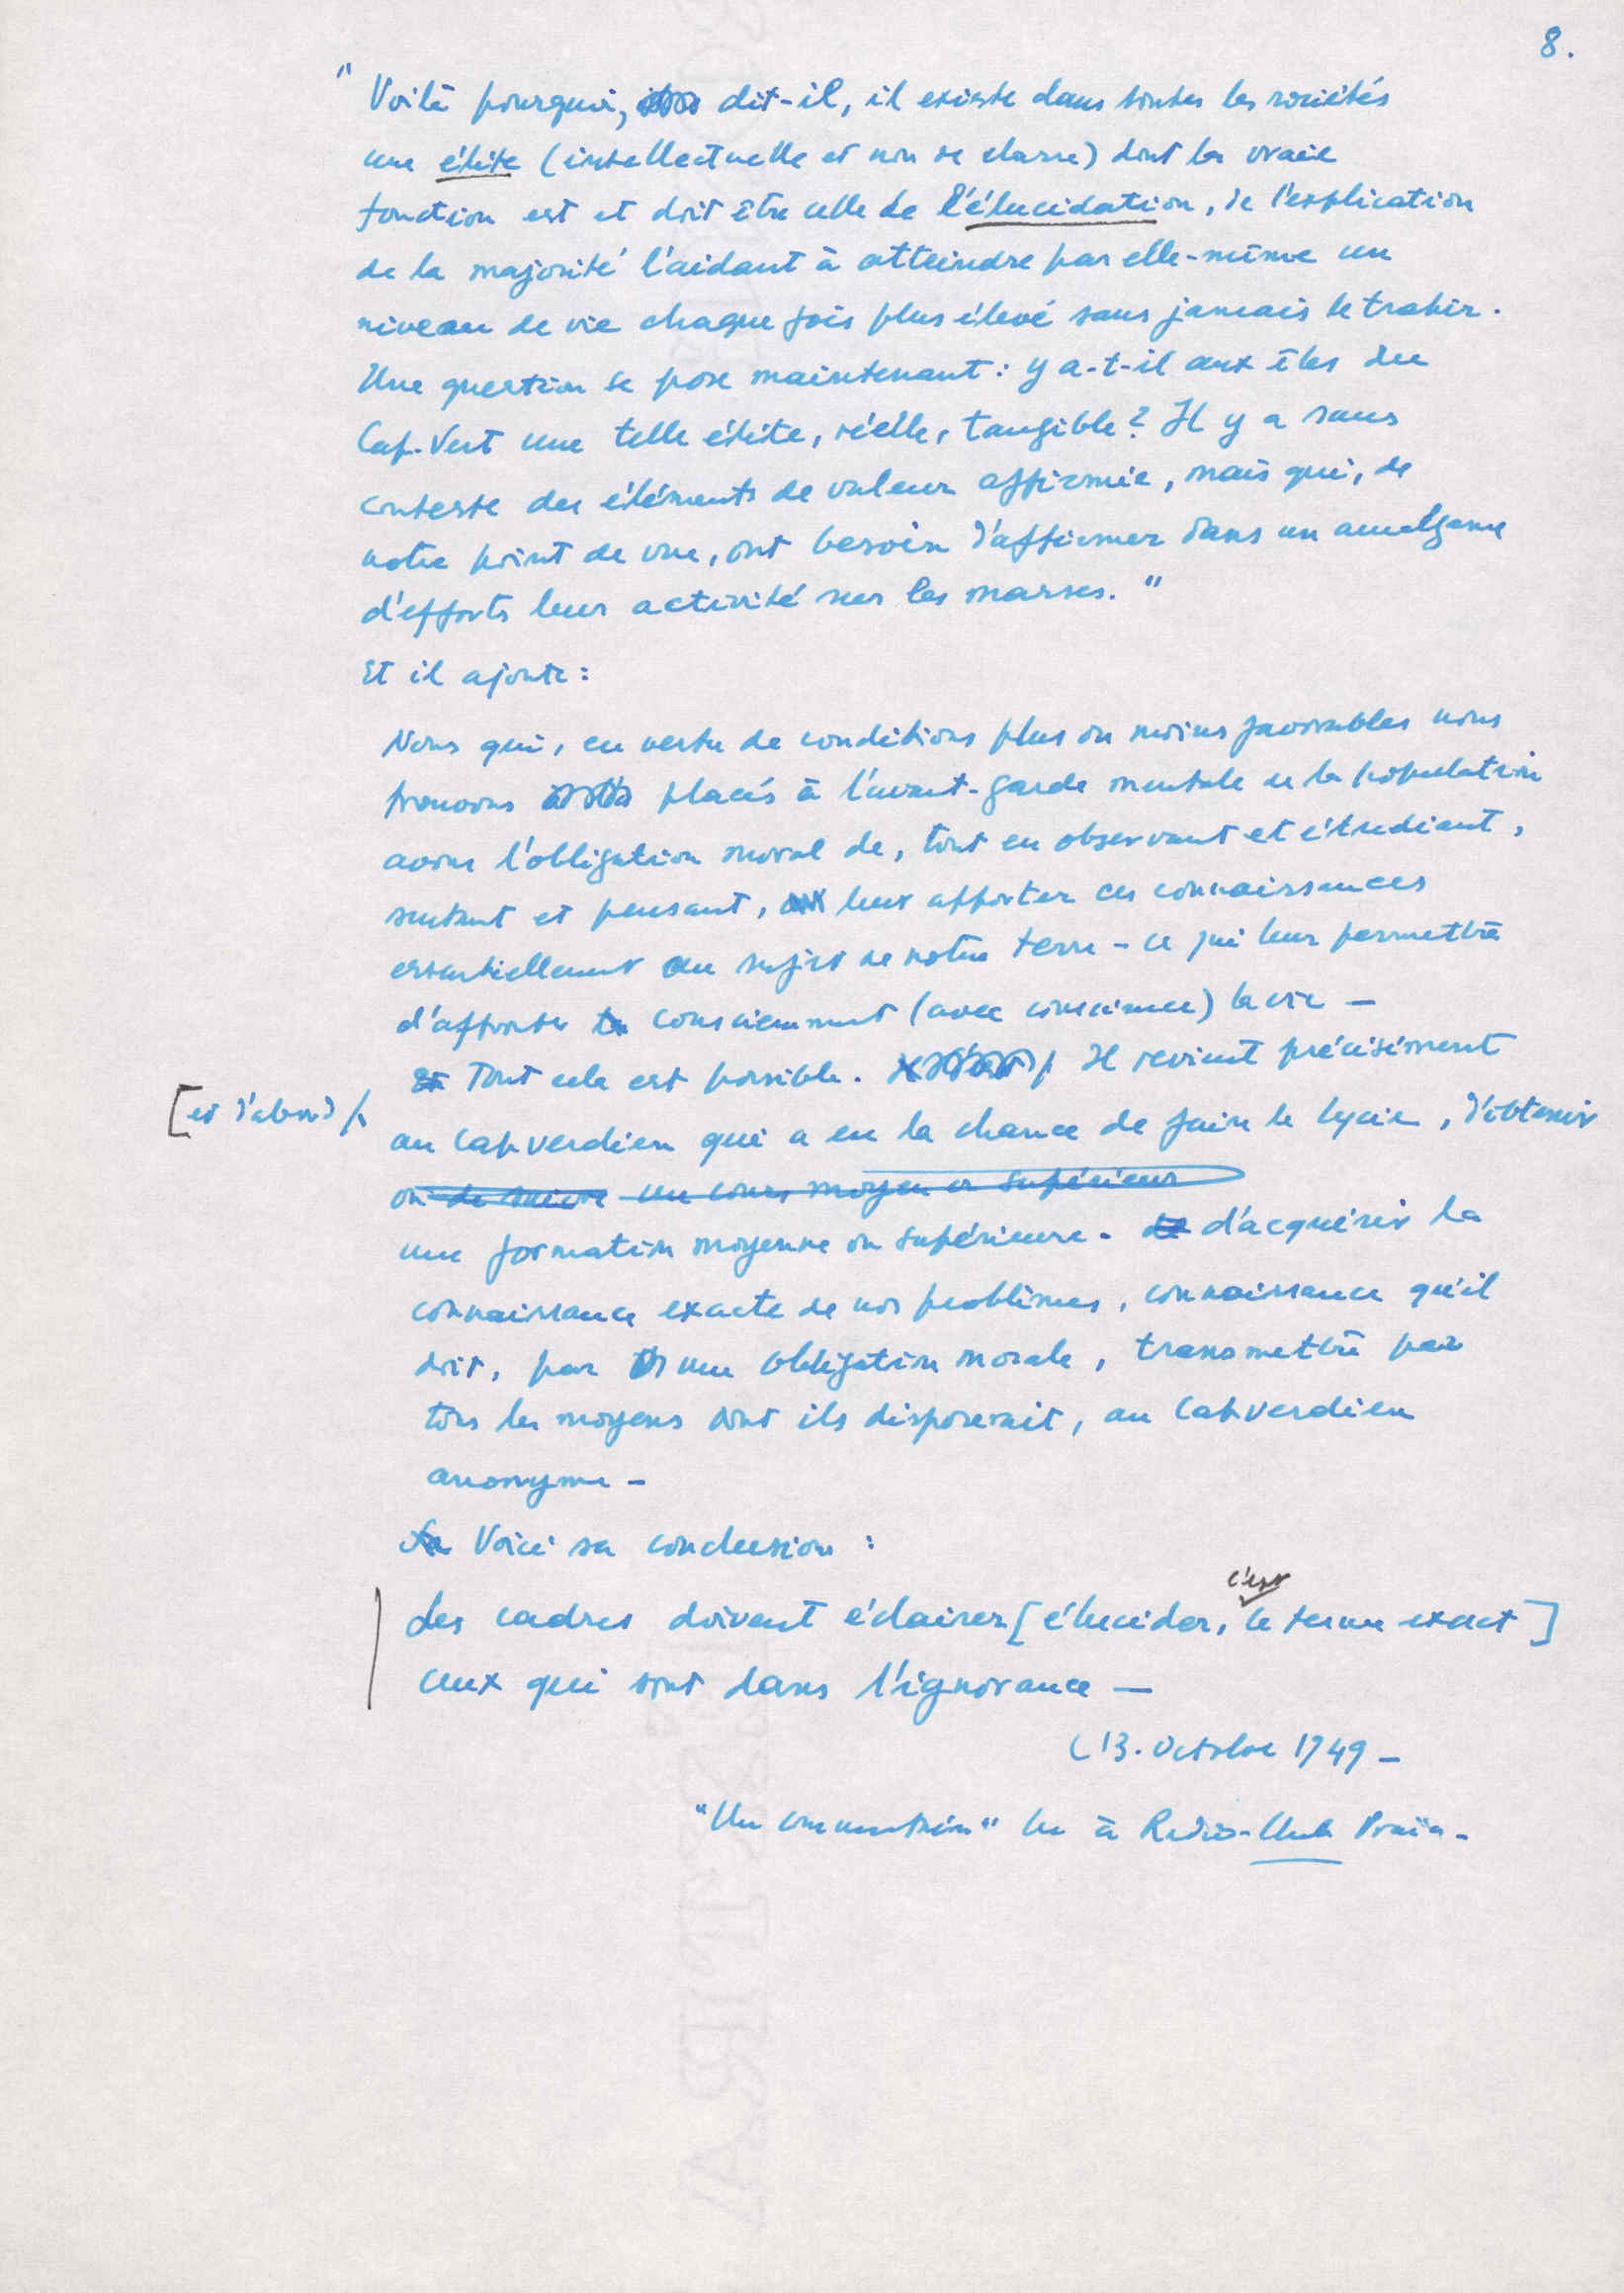 8.
" Voilà pourquoi, dit-il, il existe dans toutes les sociétés
une élite (intellectuelle et non de classe) dont la vraie
fonction est et doit être celle de l'élucidation, de l'explication
de la majorité l'aidant à atteindre par elle-même un
niveau de vie chaque fois plus élevé sans jamais le trahir.
Une question se pose maintenant : y a-t-il aux îles du
Cap-Vert une telle élite, réelle, tangible ? Il y a sans
conteste des éléments de valeur affirmée, mais qui, de
notre point de vue, ont besoin d'affirmer dans un amalgame
d'efforts leur activité sur les masses. "
Et il ajoute :
Nous qui, en vertu de conditions plus ou moins favorables nous
trouvons placés à l'avant-garde mentale de la population
avons l'obligation moral de, tout en observant et étudiant,
sentant et pensant, leur apporter ces connaissances
essentiellement au sujet de notre terre - ce qui leur permettra
d'affronter consciemment (avec conscience) la vie -
Tout cela est possible. Il revient précisément
[et d'abord]
au capverdien qui a eu la chance de faire le lycée, d'obtenir
ou de suivre un cours moyen ou supérieur
une formation moyenne ou supérieure. d'acquérir la
connaissance exacte de nos problèmes, connaissance qu'il
doit, par une obligation morale, transmettre par
tous les moyens dont ils disposerait, au capverdien
anonyme -
Voici sa conclusion :
c'est
Les cadres doivent éclairer [élucider, le terme exact]
ceux qui sont dans l'ignorance -
(13. Octobre 1949 -
"Un commentaire" lu à Radio-Club Praïa.